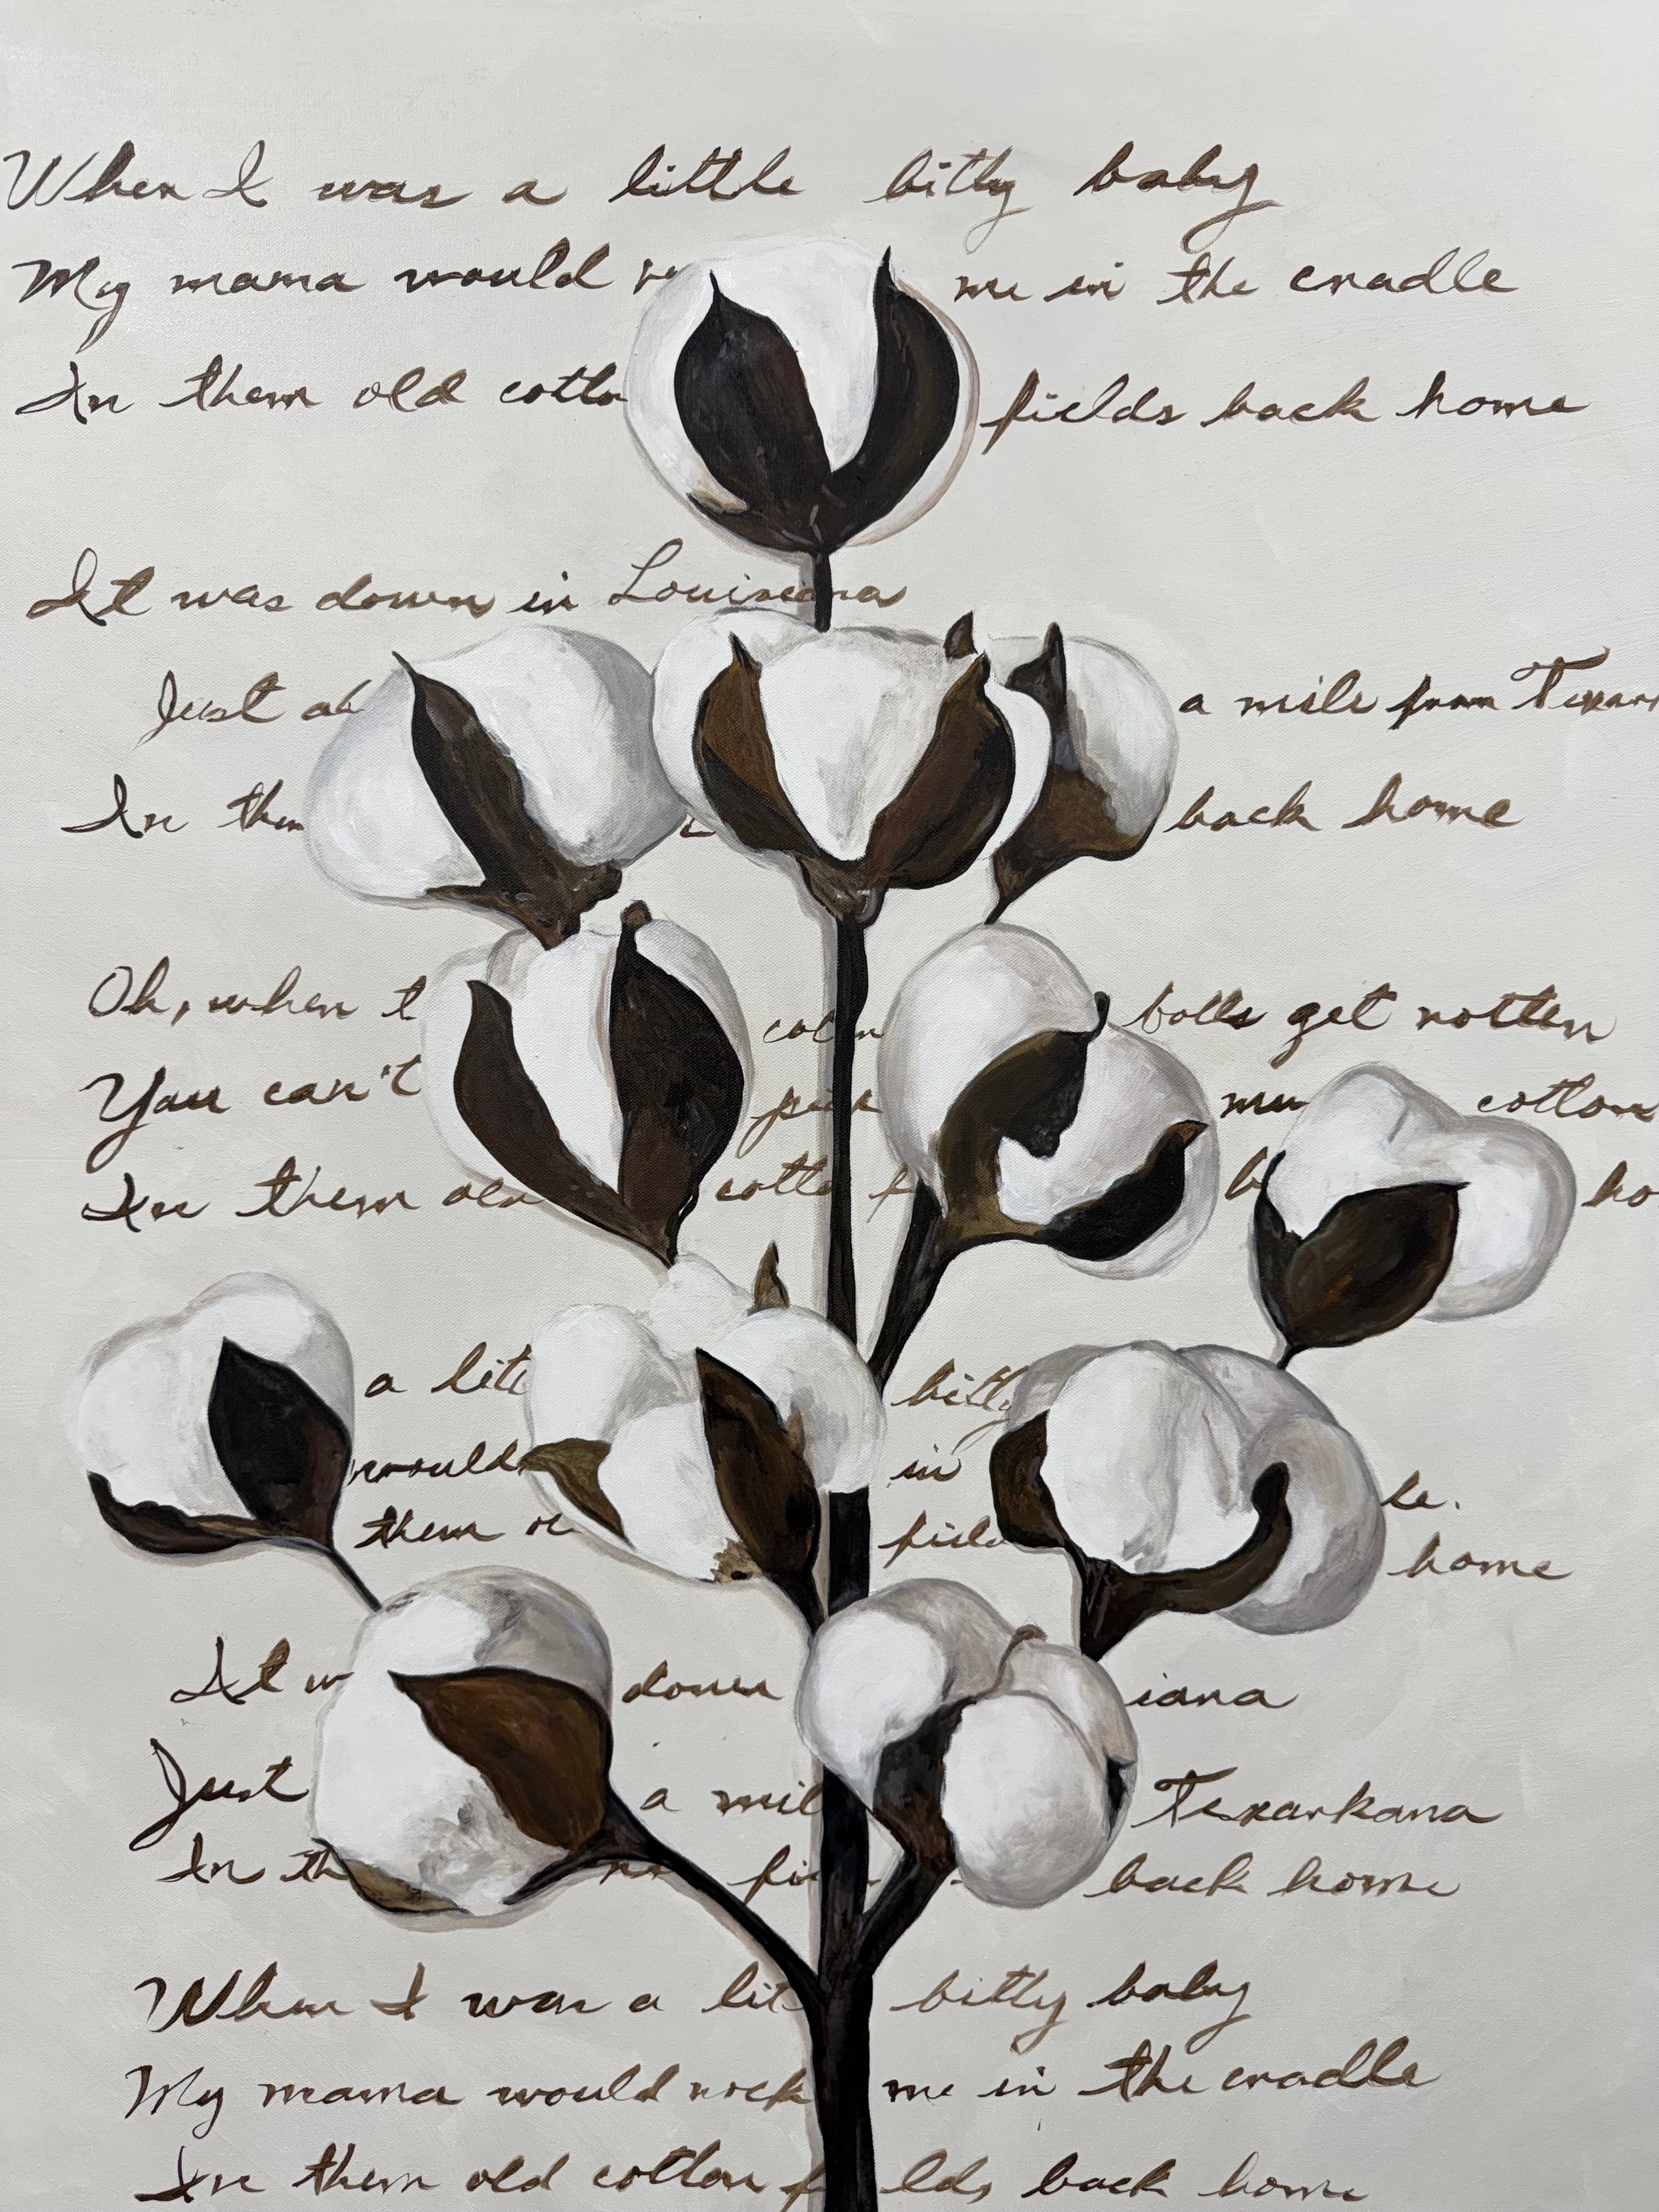 When I was a little bitty baby
My mama would me in the cradle
In them old cotto fields back home
It was down in Louisiana
Just ab a mile from Texar
In them back home
Oh, when t cotton bolls get rotten
You can't pick mu cotton
In them old cotto f b ho
a litt bitty
would in le.
them ol field home
It w down iana
Just a mil Texarkana
In th fi back home
When I was a lit bitty baby
My mama would rock me in the cradle
In them old cotton f lds back home